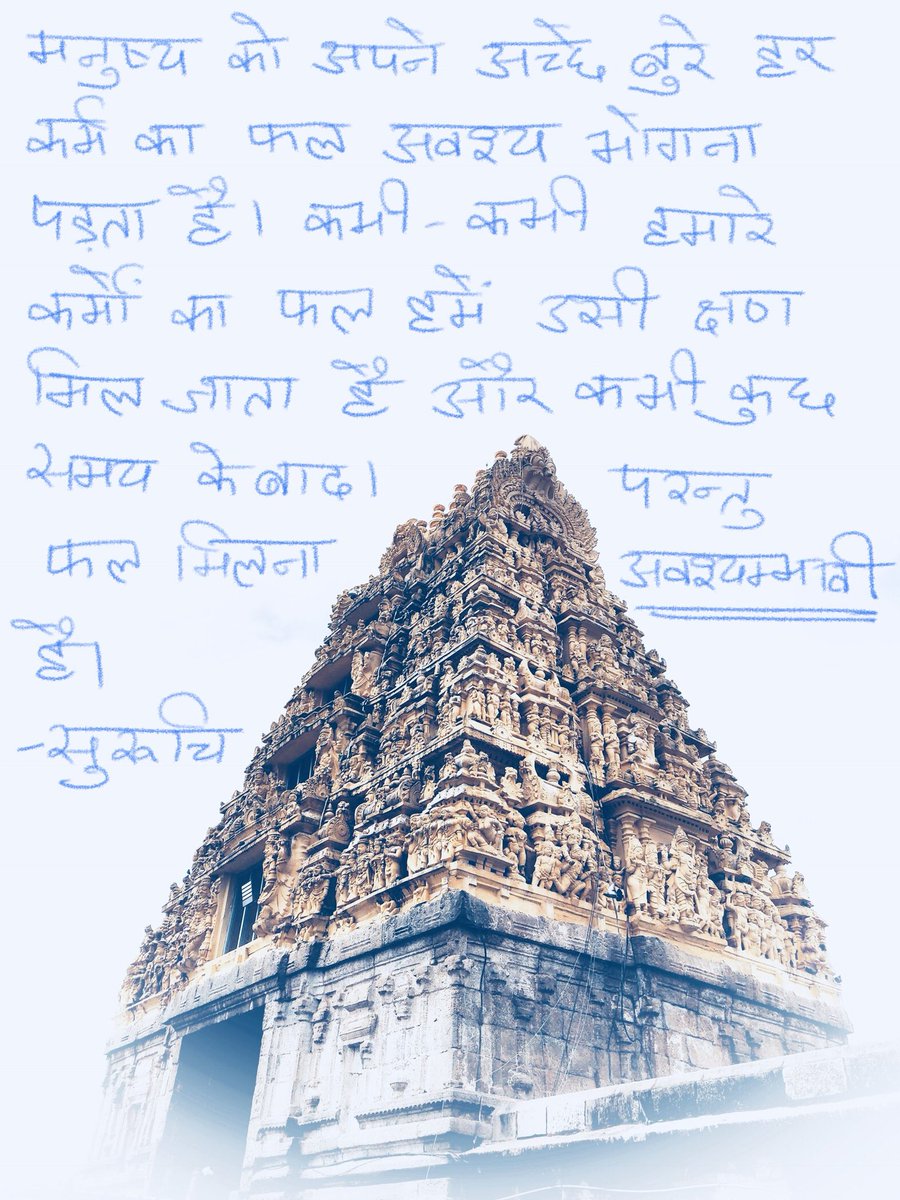 मनुष्य को अपने अच्छे बुरे हर
कर्म का फल अवश्य भोगना
पड़ता है। कभी-कभी हमारे
कर्मों का फल हमें उसी क्षण
मिल जाता है और कभी कुछ
समय के बाद। परन्तु
फल मिलना अवश्यम्भावी
है।
-सुरूचि